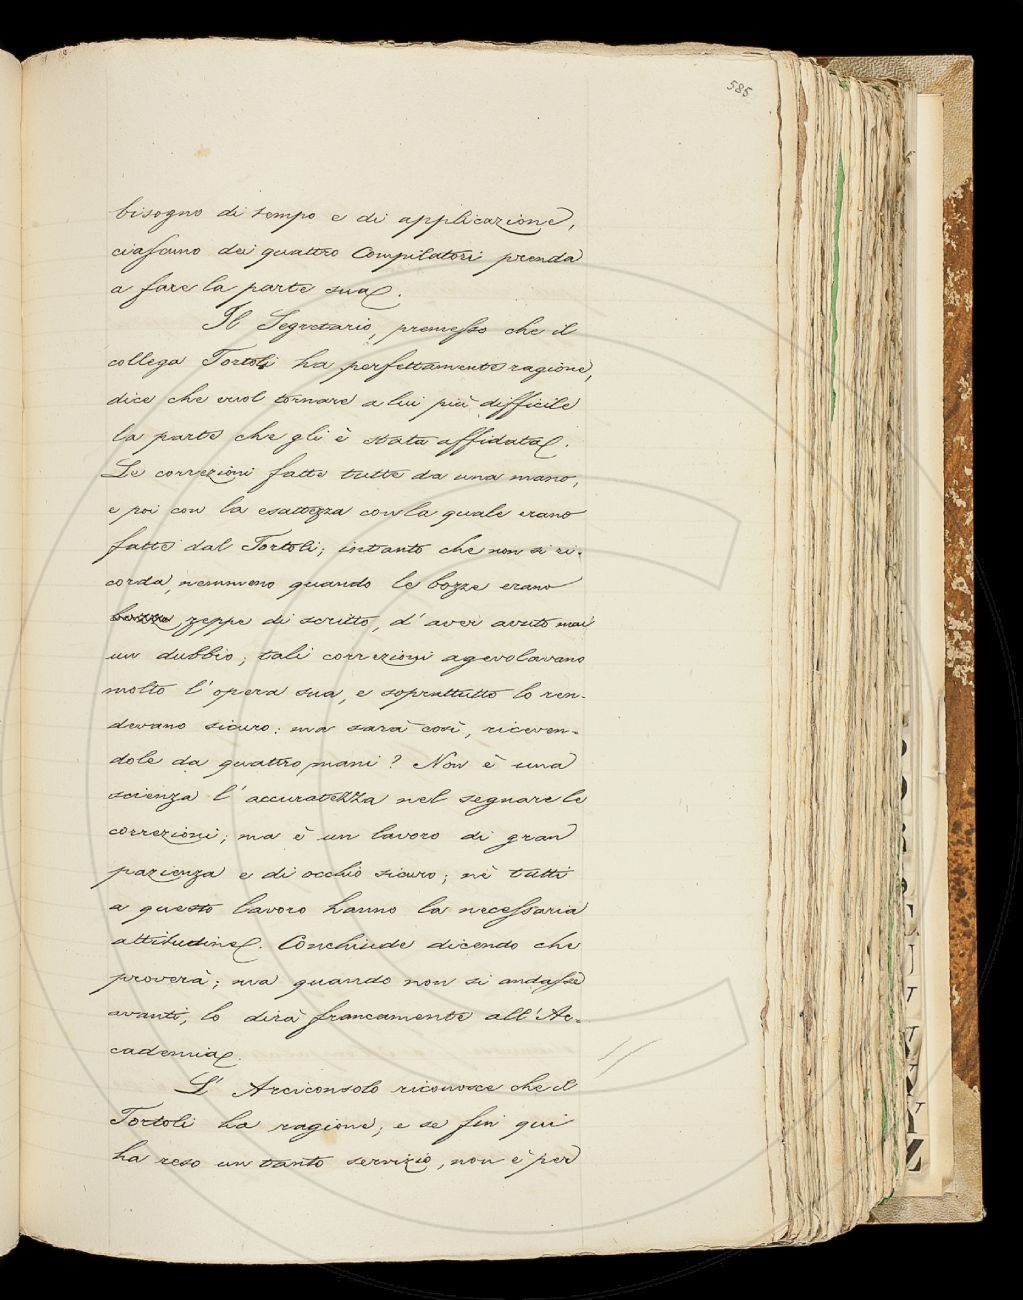 585
bisogno di tempo e di applicazione,
ciascuno dei quattro Compilatori prenda
a fare la parte sua.
Il Segretario, premesso che il
collega Tortoli ha perfettamente ragione,
dice che vuol tornare a lui più difficile
la parte che gli è stata affidata.
Le correzioni fatte tutte da una mano,
e poi con la esattezza con la quale erano
fatte dal Tortoli; intanto che non si ri-
corda, nemmeno quando le bozze erano
zeppe di scritto, d'aver avuto mai
un dubbio; tali correzioni agevolavano
molto l'opera sua, e soprattutto lo ren-
devano sicuro: ma sarà così, riceven-
dole da quattro mani? Non è una
scienza l'accuratezza nel segnare le
correzioni; ma è un lavoro di gran
pazienza e di occhio sicuro; nè tutti
a questo lavoro hanno la necessaria
attitudine. Conchiude dicendo che
proverà; ma quando non si andasse
avanti, lo dirà francamente all'Ac-
cademia.
L'Arciconsolo riconosce che il
Tortoli ha ragione; e se fin qui
ha reso un tanto servizio, non è per